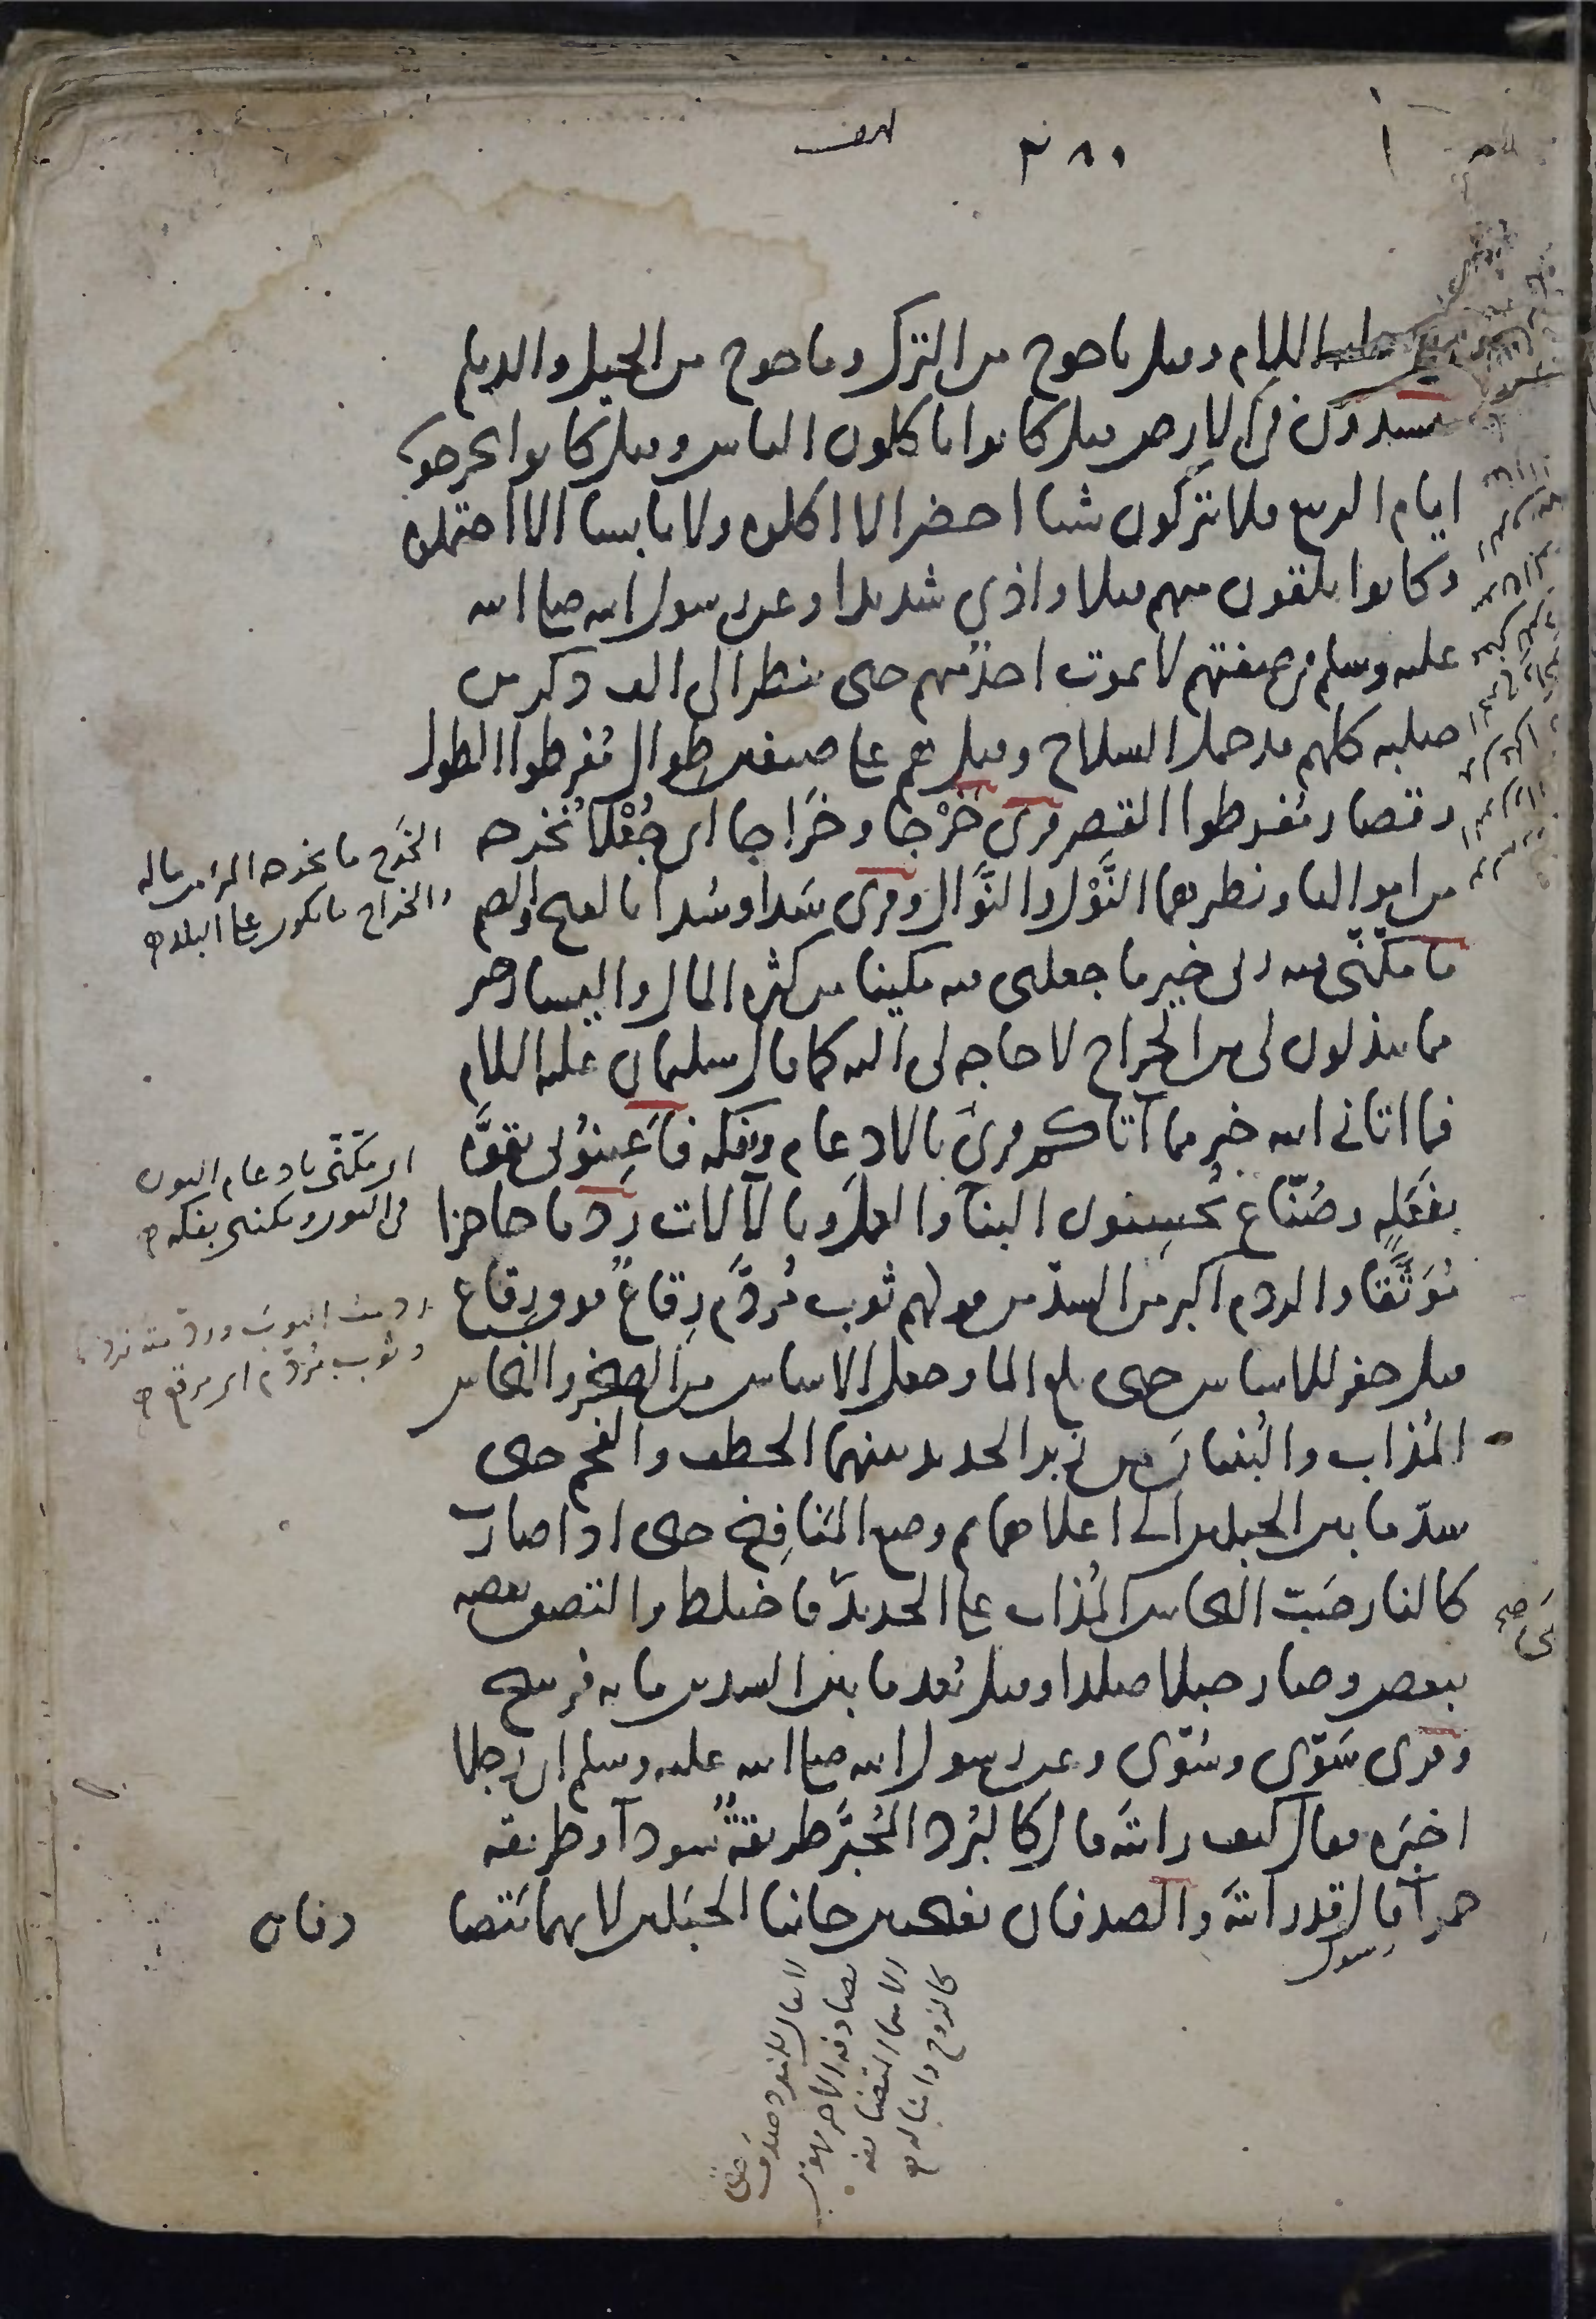 ٣٨٥
السلام وقيل ياجوج من الترك وماجوج من الجيل والديلم
مفسدون في الارض قيل كانوا ياكلون الناس وقيل كانوا يخرجون
ايام الربيع فلا يتركون شيئا اخضر الا اكلوه ولا يابسا الا احتملوه
وكانوا يلقون منهم قتلا واذى شديدا وعن رسول الله صلى الله
عليه وسلم في صفتهم لا يموت احد منهم حتى ينظر الى الف ذكر من
صلبه كلهم قد حمل السلاح وقيل هم على صنفين طوال مُفرطوا الطول
وقصار مُفرطوا القصر قرئ خَرْجا وخَرَاجا اى جُعْلا نُخرجه
من اموالنا ونظيرهما النَّوْل والنَّوَال وقرئ سَدا وسُدا بالفتح والضم
ما مكنّى فيه ربى خير ما جعلنى فيه مكينا من كثرة المال واليسار خير
مما تبذلون لى من الخراج لا حاجة لى اليه كما قال سليمان عليه السلام
فما اتانى الله خير مما آتاكم قرئ بالادغام وبفكه فاَعِينُونى بقوَّه
بفَعَلةٍ وصُنّاع يُحسِنون البنآ والعمل وبالآلات ردما حاجزا
مُوَثَّقا والردم اكبر من السدّ من قولهم ثوب مُردَّم رِقاعٌ فوق رِقاع
قيل حفر للاساس حتى بلغ الما وجعل الاساس من الصخر والنحاس
المُذاب والبُنيان من زبر الحديد بينهما الحطب والفحم حتى
سدّ ما بين الجبلين الى اعلاهما ثم وضع المنَافِخ حتى اذا صارت
كالنار صَبّ النحاس المُذاب على الحديد فاختلط والتصق بعضه
ببعض وصار جبلا صلدا وقيل بُعد ما بين السدين مايه فرسخ
وقرى سَوّى وسُوّى وعن رسول الله صلى الله عليه وسلم ان رجلا
اخبَره فقال كيف رايتَه قال كالبُرد المُحبَّر طريقةٌ سودآ وطريقه
حمرآ قال قد رايتَه والصدفان بفتحتين جانبا الجبلين لانهما يَتصا
رسول
دفان
الخَرج ما يخرجه المرء من ماله
والخراج ما يكون على البلد
اى مكنّنى بادغام النون
فى النون ومكننى بفكه
وثوب مُردَّم اى مرقع
صح
لا يقال للمنفرد صدف حتى
يصادفه الاخر فهو من
الاسما المتضايفه
كالزوج وامثاله